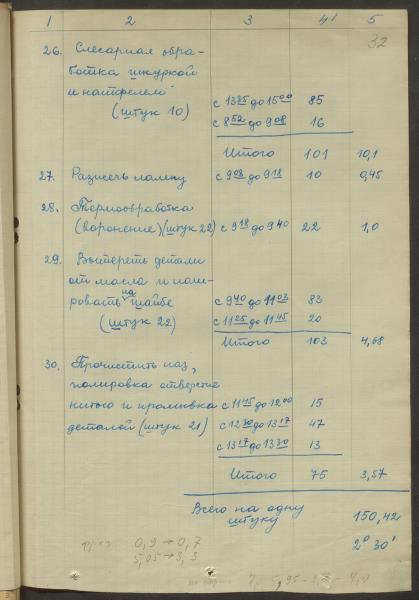 1 2 3 4 5
32
26. Слесарная обра-
ботка шкуркой
и натфелем
с 13³⁵ до 15⁰⁰ 85
(штук 10) с 8⁵² до 9⁰⁸ 16
Итого 101 10,1
27. Разжечь лампу с 9⁰⁸ до 9¹⁸ 10 0,45
28. Термообработка
(воронение) (штук 22) с 9¹⁸ до 9⁴⁰ 22 1,0
29. Вытереть детали
от масла и поли-
ровать на шайбе с 9⁴⁰ до 11⁰³ 83
(штук 22) с 11²⁵ до 11⁴⁵ 20
Итого 103 4,68
30. Прочистить паз,
полировка отверстие
и промывка с 11⁴⁵ до 12⁰⁰ 15
деталей (штук 21) с 12³⁰ до 13¹⁷ 47
с 13¹⁷ до 13³⁰ 13
Итого 75 3,57
Всего на одну
штуку 150,42
2° 30'
0,9 → 0,7
5,05 → 3,3